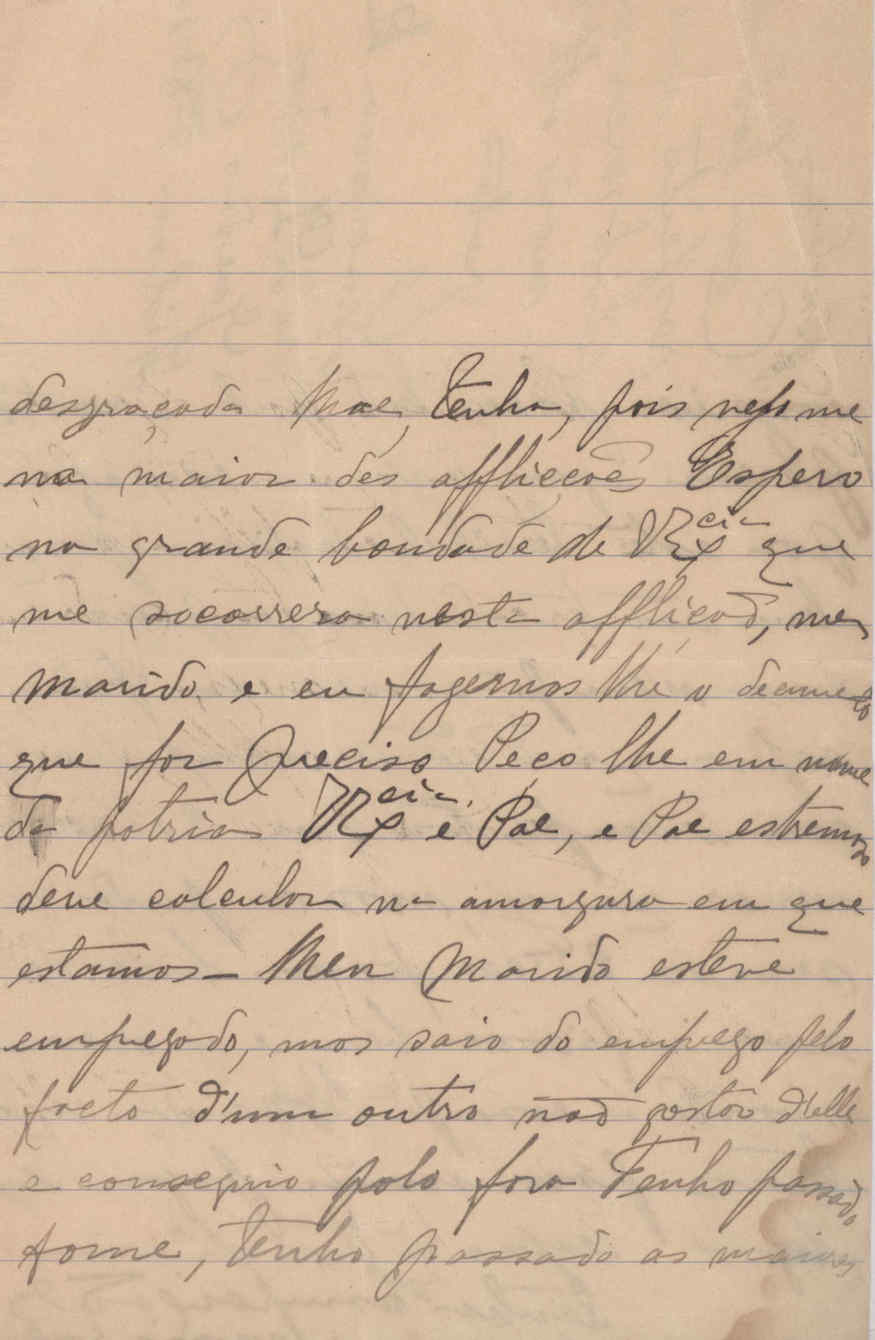 desgraçada Mae, tenha, pois vejo me
na maior das afflicções Espero
na grande bondade de V Ex.cia que
me socorrera nesta afflicaõ, meu
marido e eu fazemos lhe o
que for preciso Peço lhe em nome
da patria V Ex.cia é Pae, e Pae estremoso
deve calcular na amargura em que
estamos - Meu Marido esteve
empregado, mas saio do emprego pelo
facto d'um outro naõ gostar d'elle
e conseguio polo fora Tenho passado
fome, tenho passado as maiores